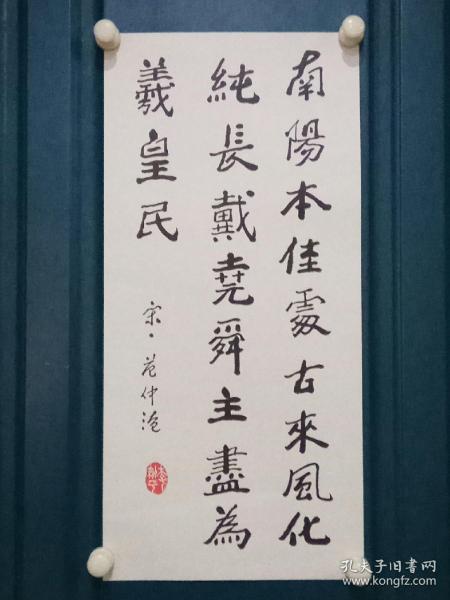 南陽本佳處古來風化
純長戴堯舜主盡為
羲皇民
宋·范仲淹
孔夫子旧书网
www.kongfz.com